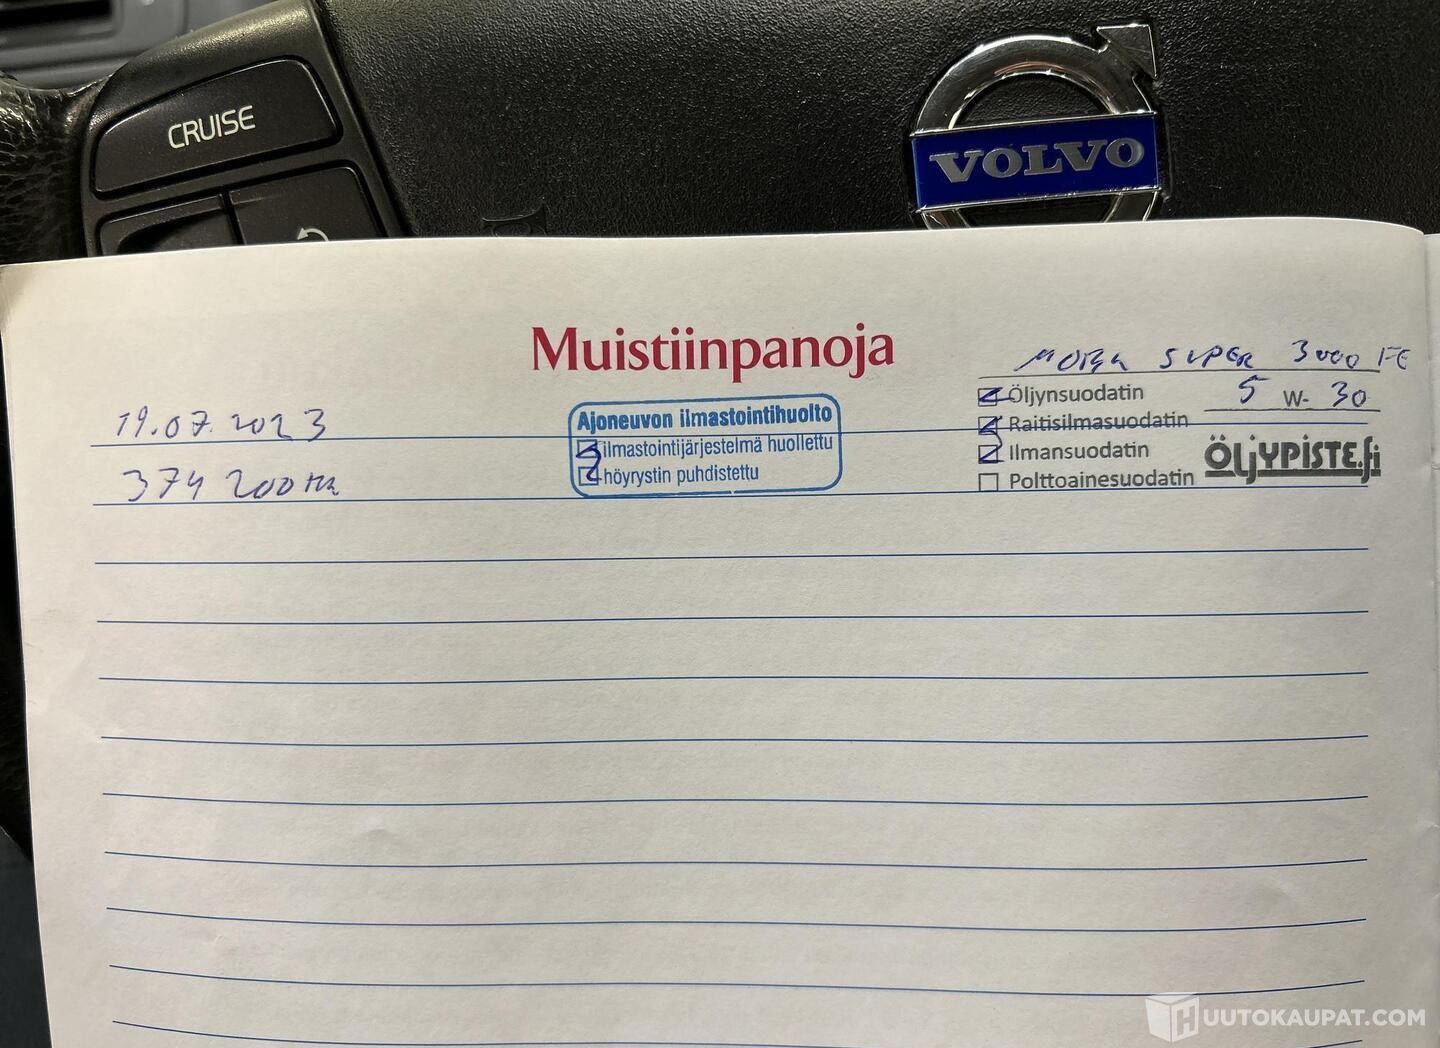 CRUISE
VOLVO
Muistiinpanoja
19.07.2023
374 200 km
Ajoneuvon ilmastointihuolto
ilmastointijärjestelmä huollettu
höyrystin puhdistettu
MOBIL SUPER 3000 FE
Öljynsuodatin
5 W- 30
Raitisilmasuodatin
Ilmansuodatin
ÖLJYPISTE.fi
Polttoainesuodatin
HUUTOKAUPAT.COM